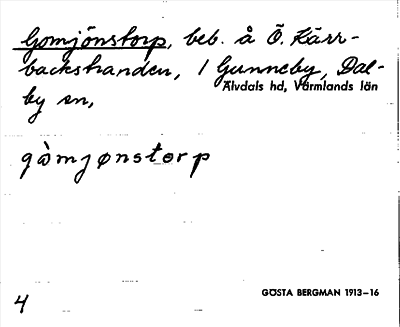 Gomjönstorp, beb. å Ö. Kärr-
backstranden, / Gunneby, Dal-
Älvdals hd, Värmlands län
by sn,
gòmjønstorp
GÖSTA BERGMAN 1913–16
4